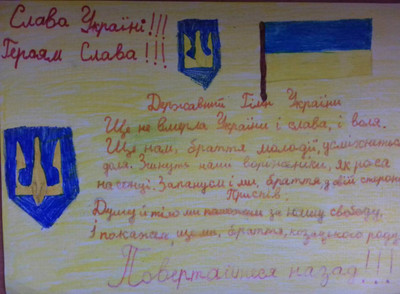 Слава Україні!!!
Героям Слава!!!
Державний Гімн України
Ще не вмерла України і слава, і воля.
Ще нам, браття молодії, усміхнеться
доля. Згинуть наші воріженьки, як роса
на сонці. Запануєм і ми, браття, у своїй стороні.
Приспів.
Душу й тіло ми положим за нашу свободу,
І покажем, що ми, браття, козацького роду
Повертайтеся назад...!!!